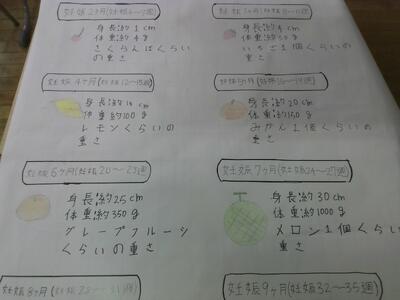 妊娠2ヶ月(妊娠4〜7週)
身長約1cm
体重約4g
さくらんぼくらい
の重さ
身長約4cm
いちご1個くらい
の重さ
妊娠4ヶ月(妊娠12〜15週)
体重約100g
レモンくらいの
重さ
身長約20cm
体重約150g
みかん1個くらいの
重さ
妊娠6ヶ月(妊娠20〜23週)
身長約25cm
体重約350g
グレープフルーツ
くらいの重さ
妊娠7ヶ月(妊娠24〜27週)
身長約30cm
体重約1000g
メロン1個くらい
重さ
妊娠8ヶ月(妊娠28〜31週)
妊娠9ヶ月(妊娠32〜35週)